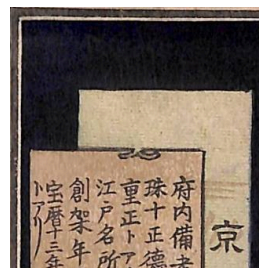 京
府内備考
珠十正德
重正トア
江戸名所
創架年
宝暦十三年
トアリ